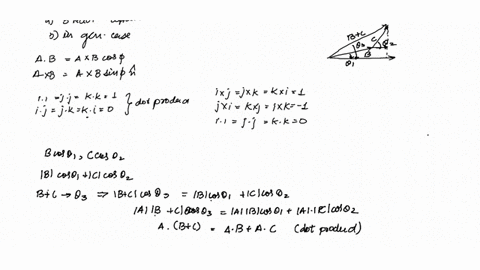 b) in gen. case
A.B = A×B cosφ
A×B = A×B sinφ n̂
i.i = j.j = k.k = 1
i.j = j.k = k.i = 0 } dot produc
i×j = j×k = k×i = 1
j×i = k×j = i×k = -1
i.i = j.j = k.k = 0
B+C
C
B
θ₃
θ₂
θ₁
B cosθ₁, C cosθ₂
|B| cosθ₁ + |C| cosθ₂
B+C → θ₃ ⇒ |B+C| cos θ₃ = |B| cosθ₁ + |C| cosθ₂
|A| |B + C| cosθ₃ = |A| |B| cosθ₁ + |A|.|C| cosθ₂
A. (B+C) = A.B + A.C (dot product)